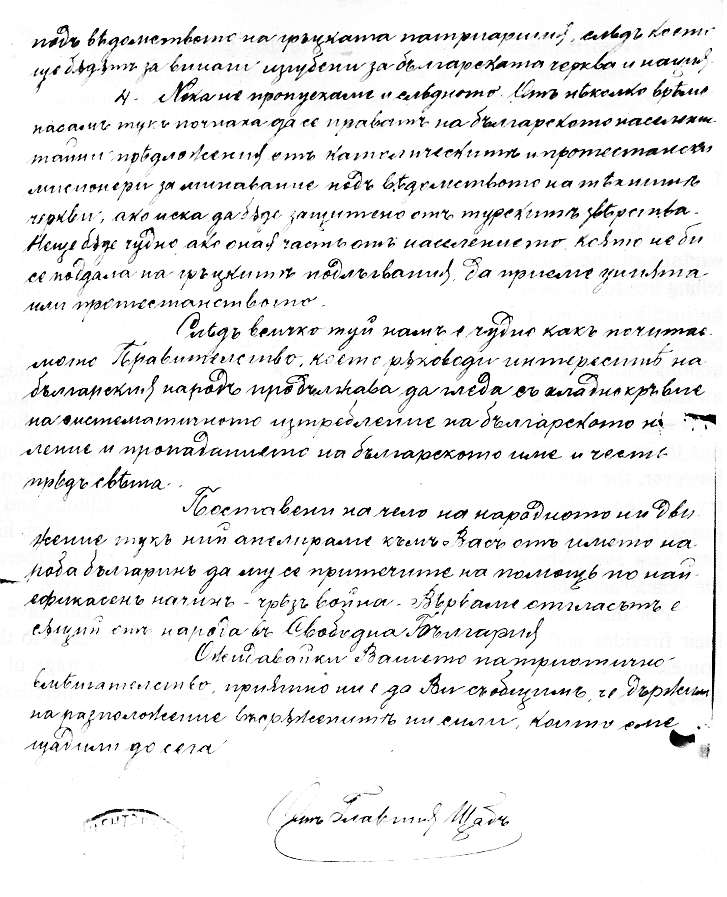 подъ вѣдомството на гръцката патриаршия, слѣдъ което
ще бѫдѫтъ за винаги изгубени за българската черква и нация.
4. Нека не пропускаме и слѣдното. Отъ нѣколко врѣме
насамъ тукъ почнаха да се правятъ на българското население
тайни прѣдложения отъ католическитѣ и протестански
мисионери за минаване подъ вѣдомството на тѣхнитѣ
черкви, ако иска да бѫде защитено отъ турскитѣ звѣрства.
Не ще бѫде чудно ако оная часть отъ населението, която не би
се поддала на гръцкитѣ подлъгвания, да приеме унията
или протестанството.
Слѣдъ всичко туй намъ е чудно какъ почитае-
мото Правителство, което рѫководи интереситѣ на
българския народъ продължава да гледа съ хладнокръвие
на систематичното изтрѣбление на българското на
ление и пропаданието на българското име и честь
прѣдъ свѣта.
Поставени на чело на народното ни дви
жение тукъ ний апелираме къмъ Васъ отъ името на
роба българинъ да му се притечите на помощь по най
ефикасенъ начинъ - чрѣзъ война. Вѣрваме отгласътъ е
сѫщий отъ народа въ Свободна България
Ожидавайки Вашето патриотично
вмѣшателство, приятно ни е да Ви съобщимъ, че държим
на разположение въорѫженитѣ ни сили, които сме
щадили до сега
Отъ Главния Щабъ